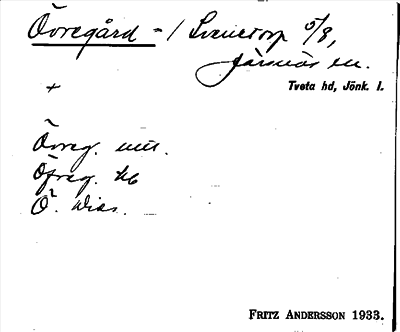 Övregård - / Svenstorp 5/8,
Järsnäs sn.
+
Tveta hd, Jönk. l.
Övreg. mtl.
Öfreg. kb
Ö. Wiss.
FRITZ ANDERSSON 1933.